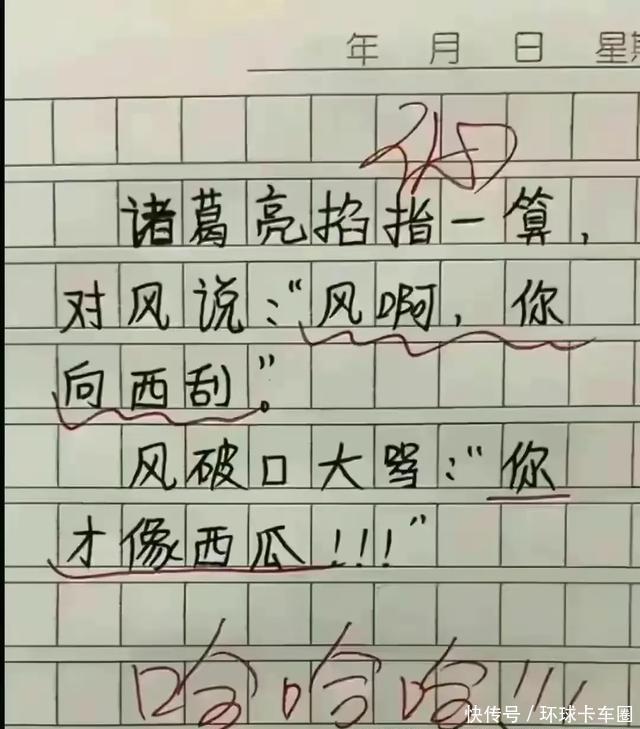 年 月 日 星期
诸葛亮掐指一算，
对风说：“风啊，你
向西刮”。
风破口大骂：“你
才像西瓜！！！”
哈哈哈！！！
快传号／环球卡车圈